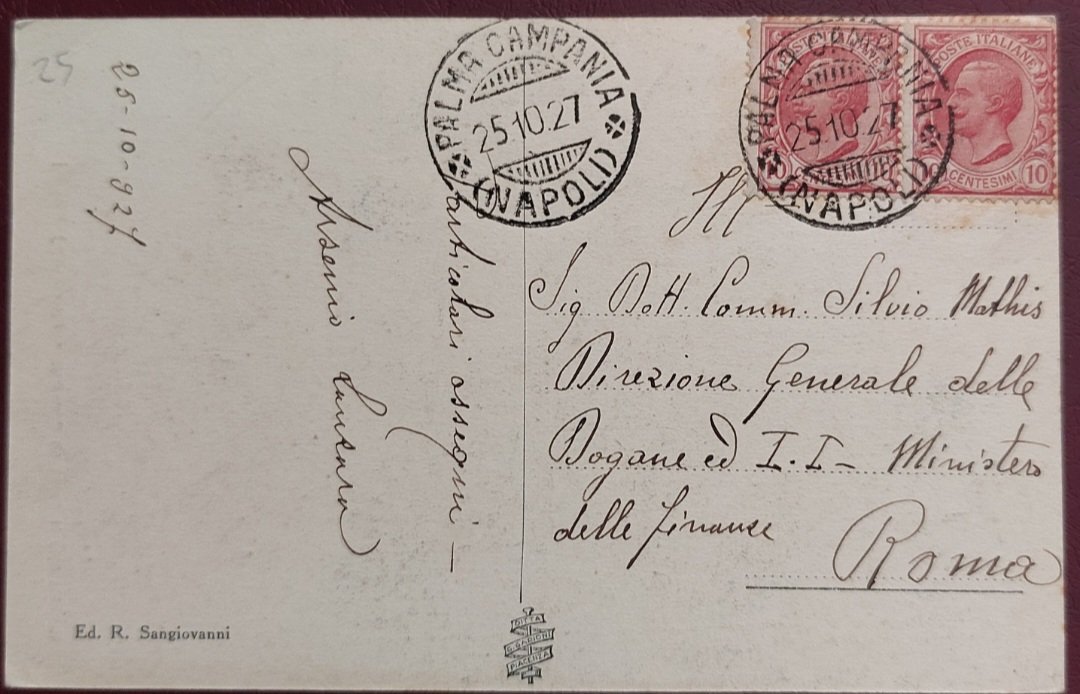 25
25-10-927
Particolari ossequi —
Arsenio
PALMA CAMPANIA
25.10.27
(NAPOLI)
PALMA CAMPANIA
25.10.27
(NAPOLI)
POSTE ITALIANE
10 CENTESIMI 10
POSTE ITALIANE
10
Ill
Sig Dott. Comm. Silvio Mathis
Direzione Generale delle
Dogane ed I. I - Ministero
delle finanze
Roma
Ed. R. Sangiovanni
DITTA
PIACENZA